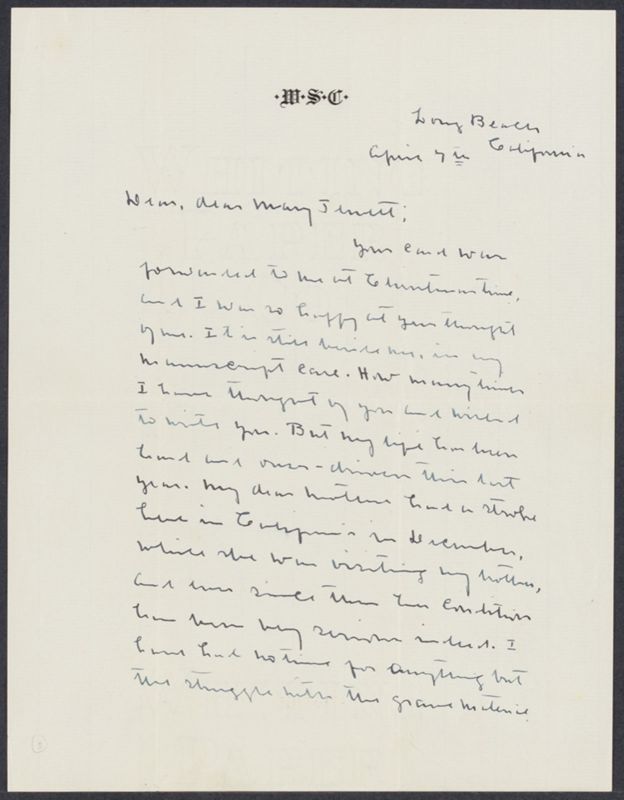 ·W·S·C·
Long Beach
April 7th California
Dear, dear Mary Jewett;
Your card was
forwarded to me at Christmas time,
and I was so happy at your thought
of me. It is still beside me, in my
manuscript case. How many times
I have thought of you and wished
to write you. But my life has been
hard and over-driven this last
year. My dear mother had a stroke
here in California in December,
while she was visiting my brother,
and ever since then her condition
has been very serious indeed. I
have had no time for anything but
the struggle with the grave material